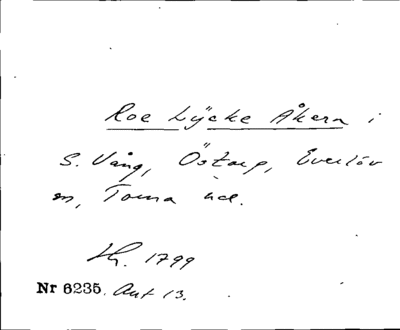 Roe Lÿcke Åkern i
S. Vång, Östarp, Everlöv
sn, Torna hd.
Lh. 1799
Nr 6235. Akt 13.